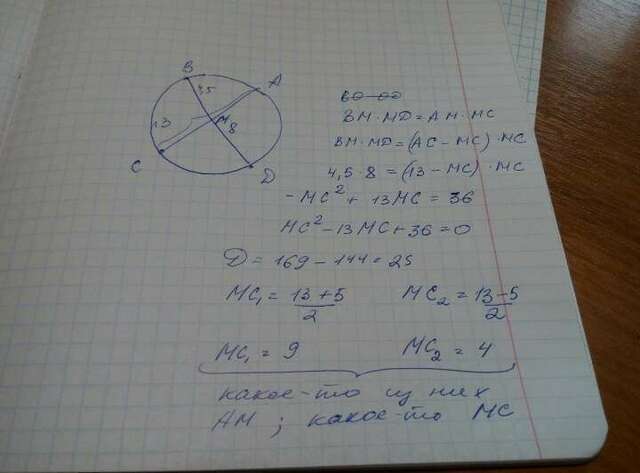 B
4,5
A
13
M
8
C
D
BM · MD = AM · MC
BM · MD = (AC - MC) · MC
4,5 · 8 = (13 - MC) · MC
-MC² + 13MC = 36
MC² - 13MC + 36 = 0
D = 169 - 144 = 25
MC₁ = 13 + 5 / 2 MC₂ = 13 - 5 / 2
MC₁ = 9 MC₂ = 4
какое-то из них
AM ; какое-то MC